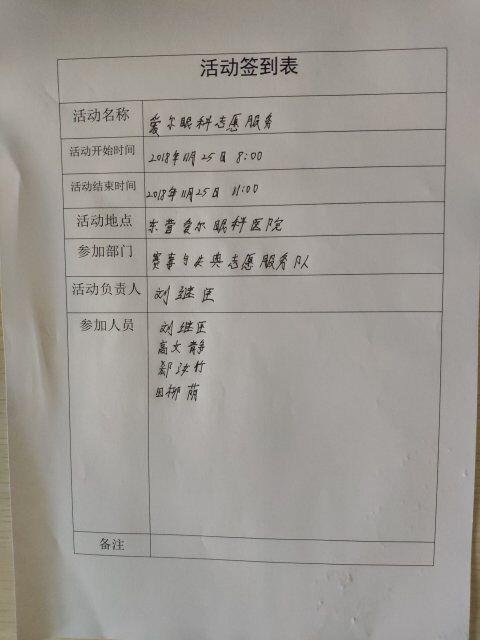 活动签到表
活动名称 爱尔眼科志愿服务
活动开始时间 2018年11月25日 8:00
活动结束时间 2018年11月25日 11:00
活动地点 东营爱尔眼科医院
参加部门 赛事与庆典志愿服务队
活动负责人 刘继匡
参加人员 刘继匡
高文静
郗汝竹
田柳萌
备注